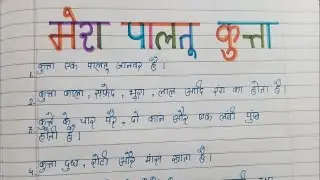 मेरा पालतू कुत्ता
1. कुत्ता एक पालतू जानवर है।
2. कुत्ता काला, सफेद, भूरा, लाल आदि रंग का होता है।
3. कुत्ते के चार पैर, दो कान और एक लंबी पूंछ
होती है।
4. कुत्ता दुध, रोटी और मांस खाता है।